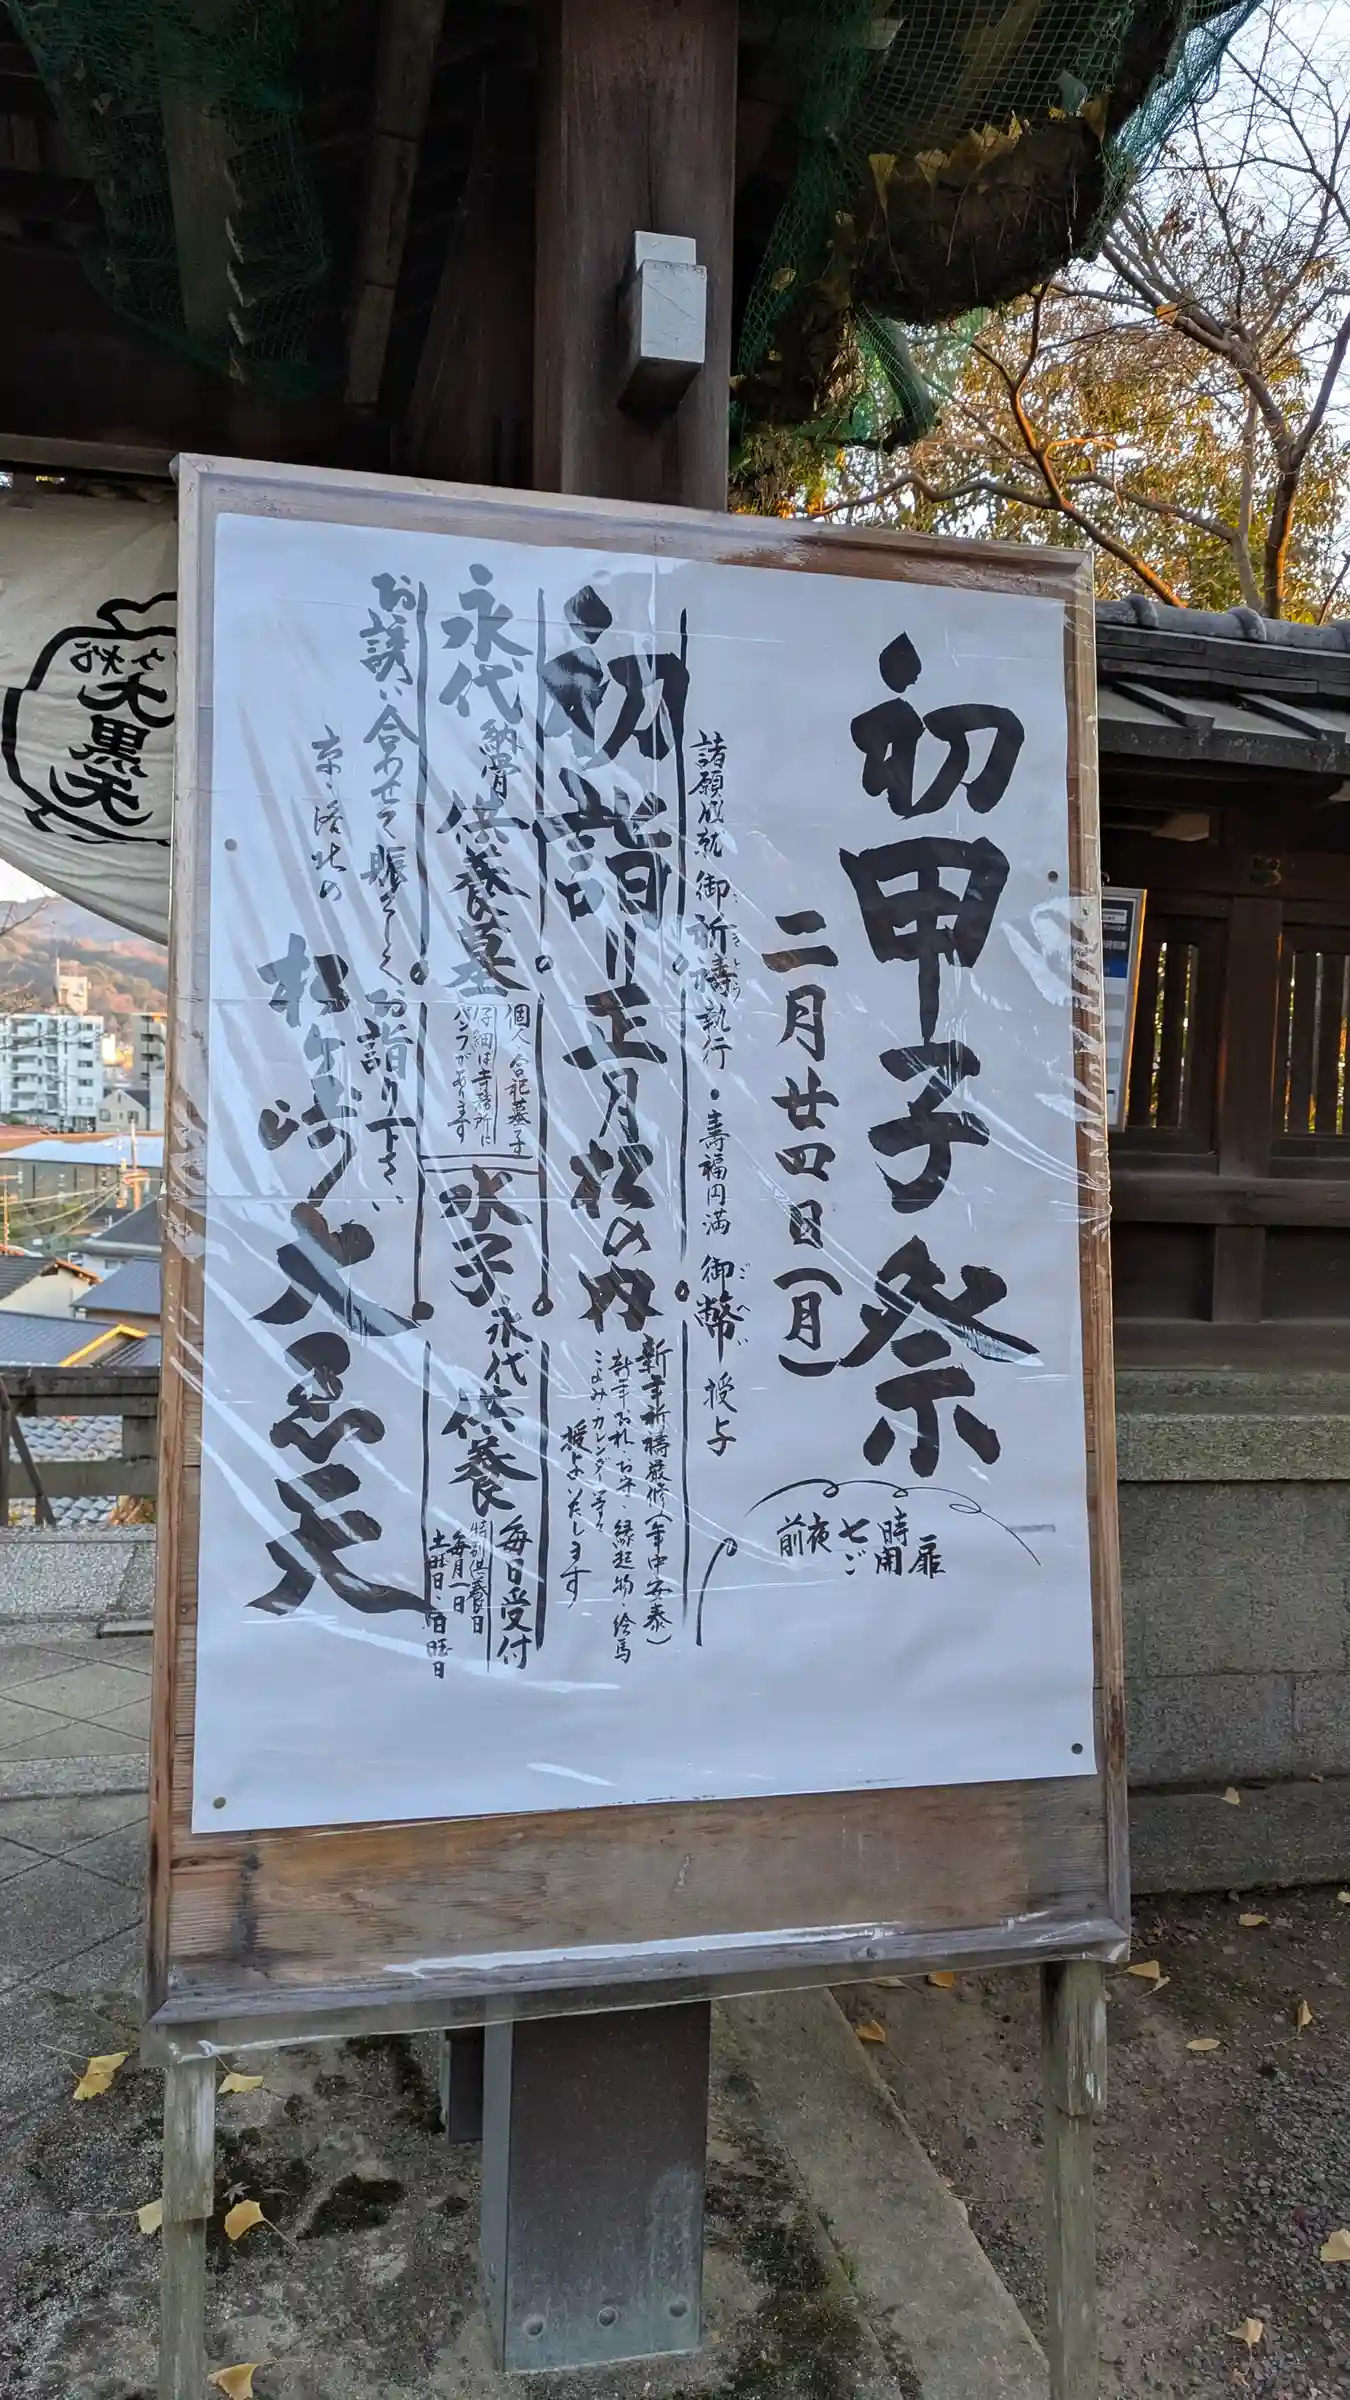 初甲子祭
二月廿四日(月)
前夜七時
ご開扉
諸願成就 御祈祷執行・寿福円満 御幣授与
ごきとう
ごへい
初詣り正月松の内
新年祈祷厳修(年中安泰)
新年お札・お守・縁起物・絵馬
こよみ・カレンダー等々
授与いたします
永代納骨供養墓
個人、合祀墓、子
仔細は寺務所に
パンフがあります
水子永代供養
毎日受付
特別供養日
毎月一日
土曜日・日曜日
お誘い合わせて賑々しくお詣り下さい、
京・洛北の
松ヶ崎大黒天
ヶ崎
大黒天